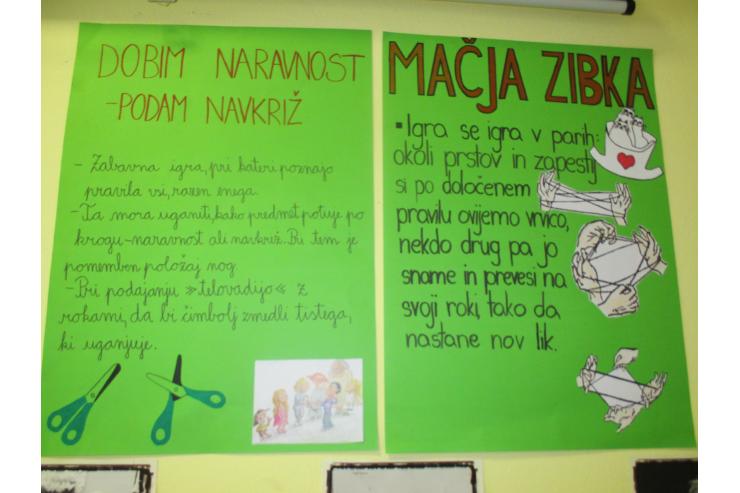 DOBIM NARAVNOST
-PODAM NAVKRIŽ
- Zabavna igra, pri kateri poznajo
pravila vsi, razen enega.
- Ta mora uganiti, kako predmet potuje po
krogu-naravnost ali navkriž. Pri tem je
pomemben položaj nog.
- Pri podajanju »telovadijo« z
rokami, da bi čimbolj zmedli tistega,
ki uganjuje.
MAČJA ZIBKA
▪ Igra se igra v parih:
okoli prstov in zapestij
si po določenem
pravilu ovijemo vrvico,
nekdo drug pa jo
sname in prevesi na
svoji roki, tako da
nastane nov lik.